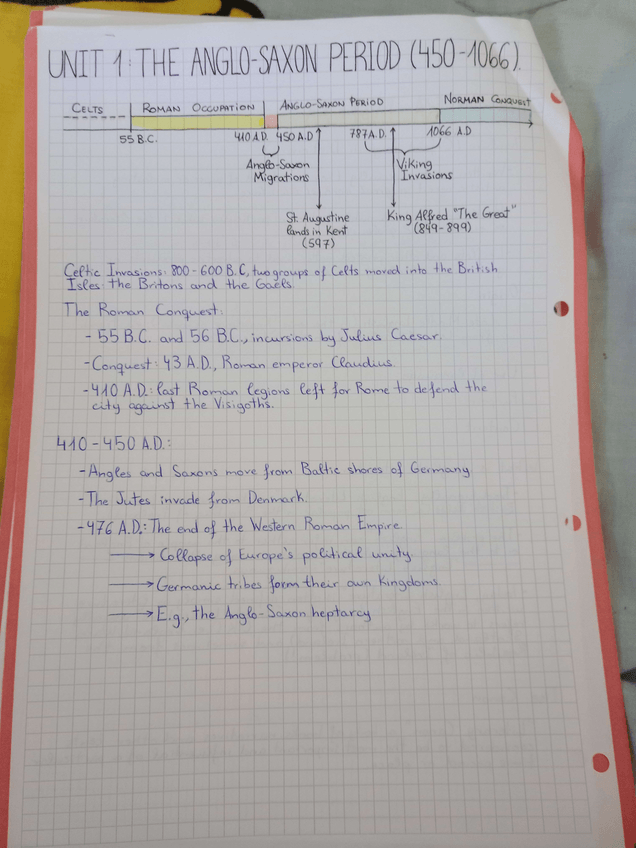 UNIT 1: THE ANGLO-SAXON PERIOD (450-1066).
CELTS ROMAN OCCUPATION ANGLO-SAXON PERIOD NORMAN CONQUEST
55 B.C. 410 A.D. 450 A.D 787 A.D. 1066 A.D
Anglo-Saxon
Migrations
Viking
Invasions
St. Augustine
lands in Kent
(597)
King Alfred "The Great"
(849-899)
Celtic Invasions: 800-600 B.C, two groups of Celts moved into the British
Isles: the Britons and the Gaels.
The Roman Conquest:
- 55 B.C. and 56 B.C., incursions by Julius Caesar.
- Conquest: 43 A.D., Roman emperor Claudius.
- 410 A.D.: last Roman legions left for Rome to defend the
city against the Visigoths.
410-450 A.D.:
- Angles and Saxons move from Baltic shores of Germany
- The Jutes invade from Denmark.
- 476 A.D.: The end of the Western Roman Empire
→ Collapse of Europe's political unity
→ Germanic tribes form their own Kingdoms.
→ E.g., the Anglo-Saxon heptarcy